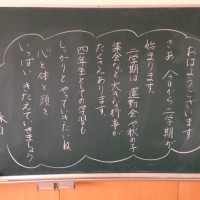 おはようございます
さあ、今日から二学期が
始まります。
二学期は、運動会や秋の子
集会など大きな行事が
たくさんあります。
四年生としての学習も
しっかりとやっていきたいね
心と体と頭を
いっぱいきたえていきましょう